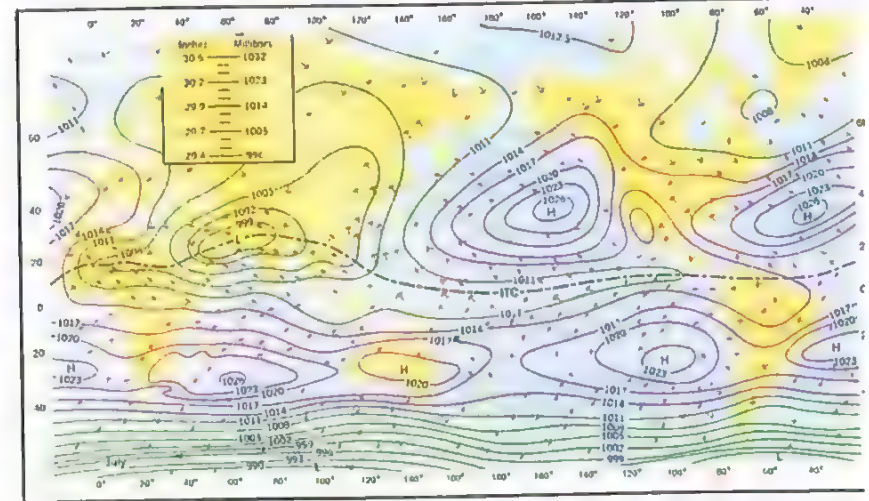 0° 20° 40° 60° 80° 100° 120° 140° 160° 180° 160° 140° 120° 100° 80° 60° 40°
Inches Millibars
30.5 1032
30.2 1023
29.9 1014
29.7 1005
29.4 996
1012.5
1008
1008
1011
1014
1017
1020
1023
1026
H
1011
1014
1017
1020
1023
1026
H
1011
1005
1002
999
L
1011
1014
1017
1020
1011
60
40
20
0
20
40
1011
ITC
1011
1014
1017
1017
1020
H
1023
1026
1023
1020
H
1020
1017
1020
H
1023
1017
1020
H
1023
1017
1014
1011
1008
1005
1002
999
996
993
990
1017
1014
1011
1008
1005
1002
999
L
July
0° 20° 40° 60° 80° 100° 120° 140° 160° 180° 160° 140° 120° 100° 80° 60° 40°